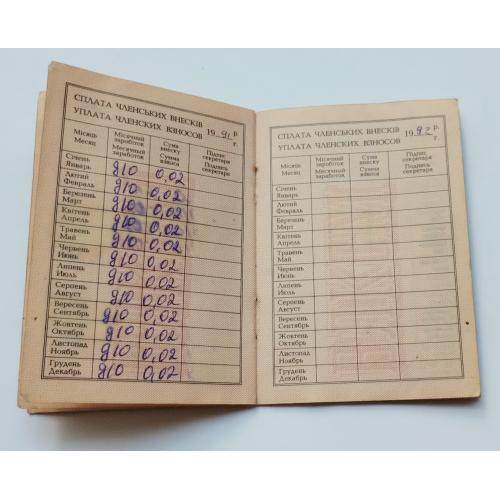 СПЛАТА ЧЛЕНСЬКИХ ВНЕСКІВ
УПЛАТА ЧЛЕНСКИХ ВЗНОСОВ
19 91 р.
г.
Місяць
Месяц
Місячний заробіток
Месячный заработок
Сума внеску
Сумма взноса
Підпис секретаря
Подпись секретаря
Січень
Январь д/о 0,02
Лютий
Февраль д/о 0,02
Березень
Март д/о 0,02
Квітень
Апрель д/о 0,02
Травень
Май д/о 0,02
Червень
Июнь д/о 0,02
Липень
Июль д/о 0,02
Серпень
Август д/о 0,02
Вересень
Сентябрь д/о 0,02
Жовтень
Октябрь д/о 0,02
Листопад
Ноябрь д/о 0,02
Грудень
Декабрь д/о 0,02
СПЛАТА ЧЛЕНСЬКИХ ВНЕСКІВ
УПЛАТА ЧЛЕНСКИХ ВЗНОСОВ
19 92 р.
г.
Місяць
Месяц
Місячний заробіток
Месячный заработок
Сума внеску
Сумма взноса
Підпис секретаря
Подпись секретаря
Січень
Январь
Лютий
Февраль
Березень
Март
Квітень
Апрель
Травень
Май
Червень
Июнь
Липень
Июль
Серпень
Август
Вересень
Сентябрь
Жовтень
Октябрь
Листопад
Ноябрь
Грудень
Декабрь